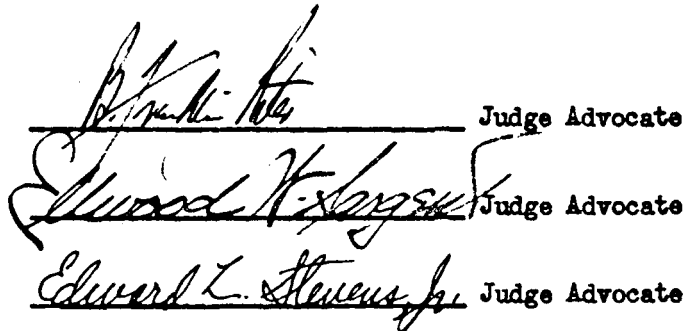 B. Franklin Riter Judge Advocate
Ellwood W. Sargent Judge Advocate
Edward L. Stevens, Jr. Judge Advocate